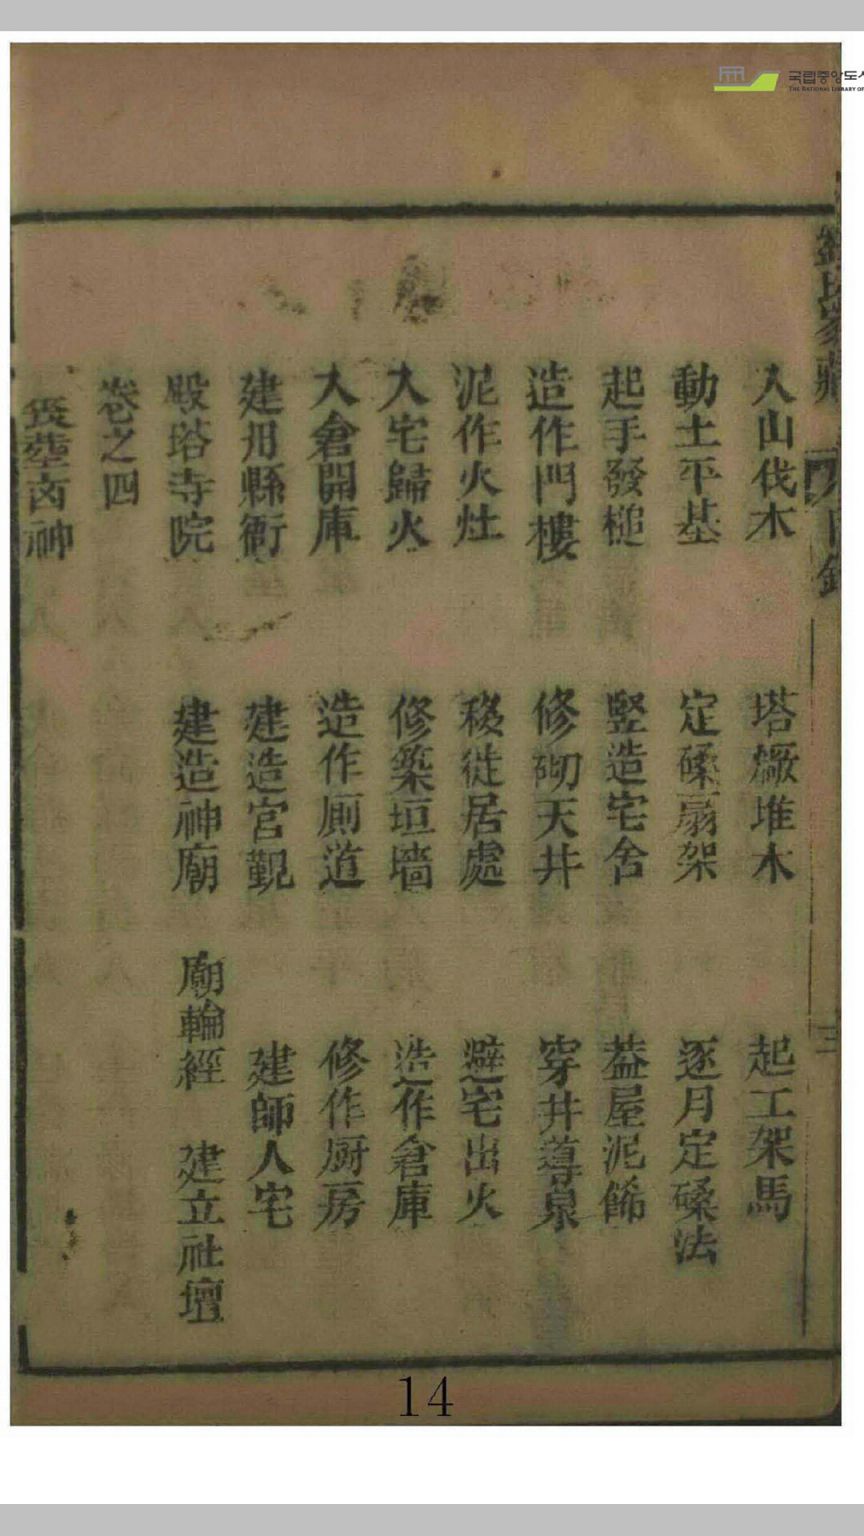 入山伐木 塔廠堆木 起工架馬
動土平基 定磉扇架 逐月定磉法
起手發槌 竪造宅舍 葢屋泥餙
造作門樓 修砌天井 穿井導泉
泥作火灶 移徙居處 避宅出火
入宅歸火 修築垣墻 造作倉庫
入倉開庫 造作厠道 修作厨房
建州縣衙 建造宮觀 建師人宅
殿塔寺院 建造神廟 廟輪經 建立社壇
卷之四
喪塟 神
14
国립중앙도서
THE NATIONAL LIBRARY OF